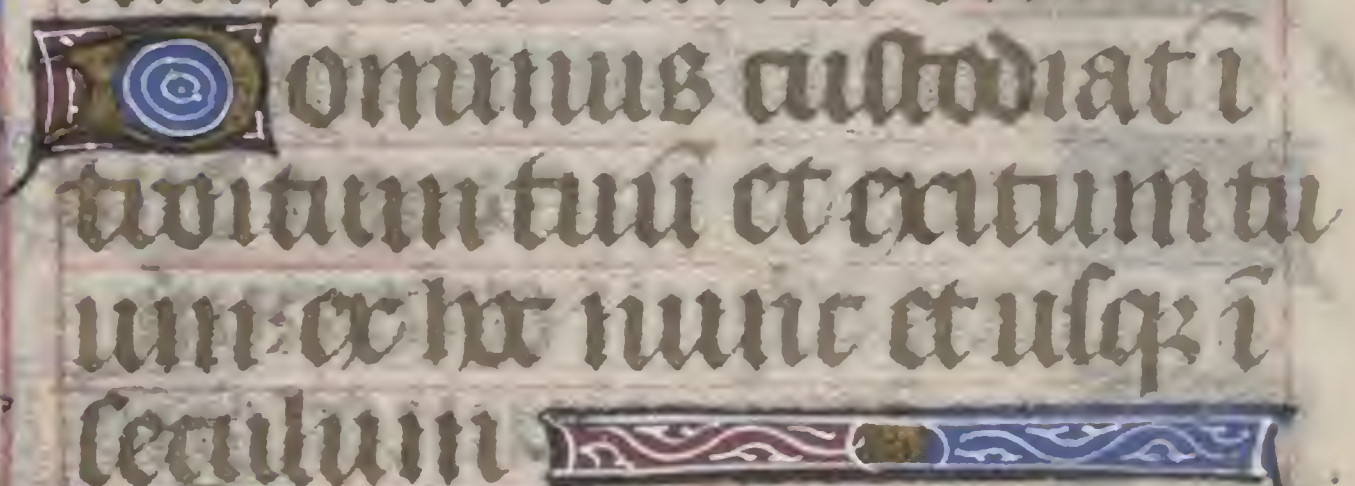 Dominus custodiat ī
troitum tuū et exitum tu
um: ex hoc nunc et usqꝫ ī
seculum